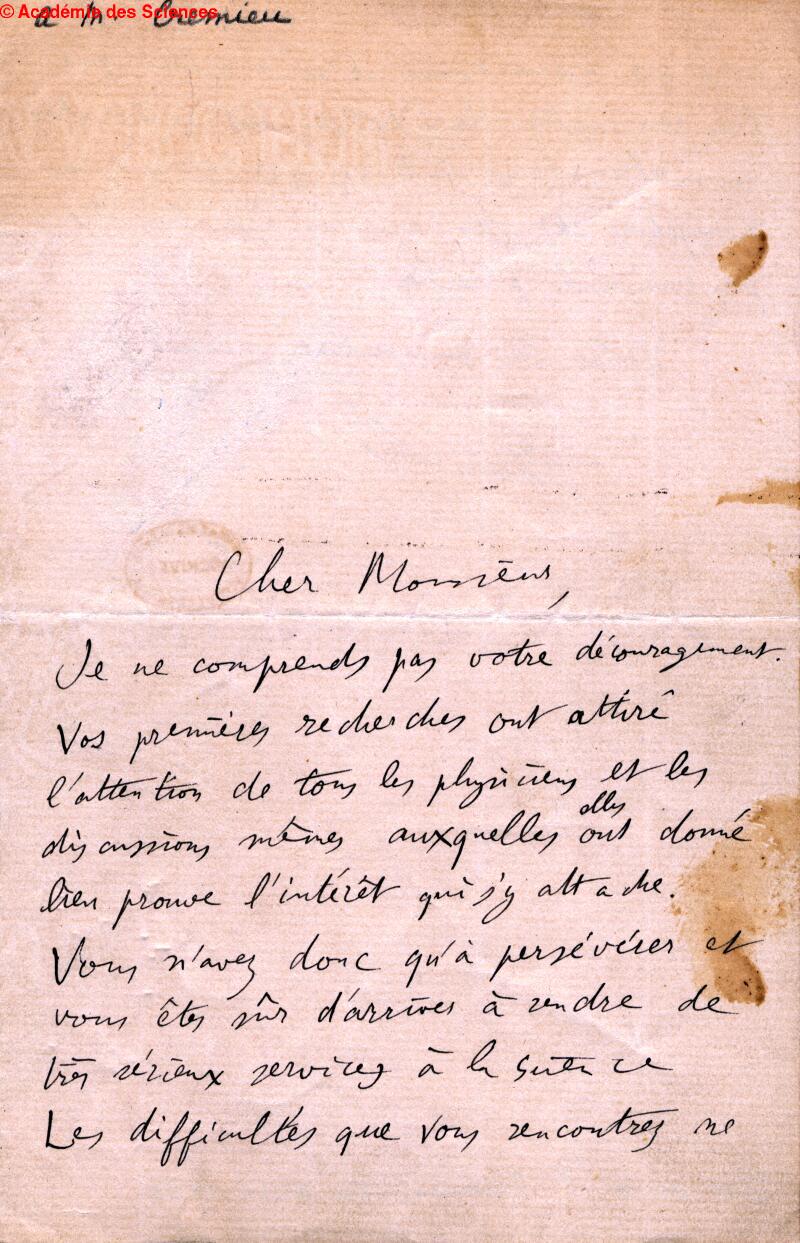 © Académie des Sciences
à Mr Crémieu
Cher Monsieur,
Je ne comprends pas votre découragement.
Vos premières recherches ont attiré
l'attention de tous les physiciens et les
discussions mêmes auxquelles elles ont donné
lieu prouve l'intérêt qui s'y attache.
Vous n'avez donc qu'à persévérer et
vous êtes sûr d'arriver à rendre de
très sérieux services à la science
Les difficultés que vous rencontrez ne